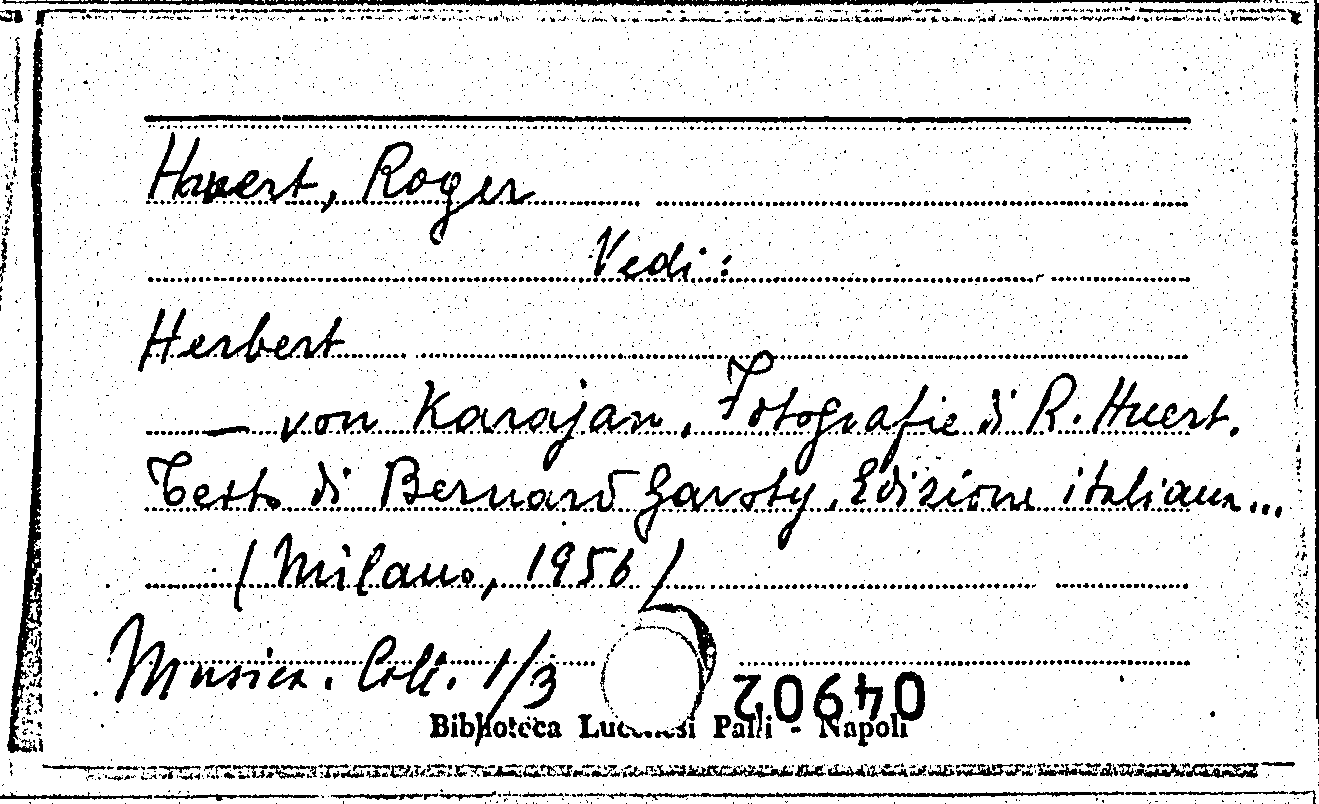 Hauert, Roger
Vedi:
Herbert
— von Karajan. Fotografie di R. Hauert.
Testo di Bernard Gavoty. Edizione italiana...
(Milano, 1956)
Musica. Coll. 1/3
04902
Biblioteca Lucchesi Palli - Napoli